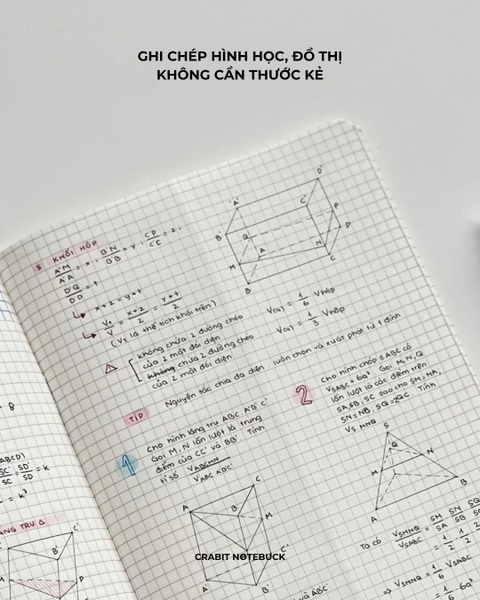 GHI CHÉP HÌNH HỌC, ĐỒ THỊ
KHÔNG CẦN THƯỚC KẺ
5 KHỐI HỘP
A'M / A'A = x, B'N / B'B = y,
D'Q / D'D = t
x+z = y+t
(V₁ là thể tích khối trên)
không chứa 2 đường chéo
của 2 mặt đối diện
chứa 2 đường chéo
của 2 mặt đối diện
V(4) = 1/6 Vhộp
V(4) = 1/3 Vhộp
Nguyên tắc chia đa diện luôn chọn và xuất phát từ 1 đỉnh
TIP
1
Cho hình lăng trụ ABC A'B'C'
Gọi M, N lần lượt là trung
điểm của CC' và BB'. Tính
tỉ số VABCMN / VABC A'B'C'
2
Cho hình chóp SABC có
VSABC = 6a³ Gọi M, N, Q
lần lượt là các điểm trên
SA, SB, SC sao cho SM=MA,
SN=NB, SQ=2QC. Tính
VS MNQ
Ta có VSMNQ / VSABC = SM / SA SN / SB
⇒ VSMNQ = 1/6 VSABC
= 1/6 6a³
ABCD)
SC' / SC = SD' / SD = k
= k³
CRABIT NOTEBUCK